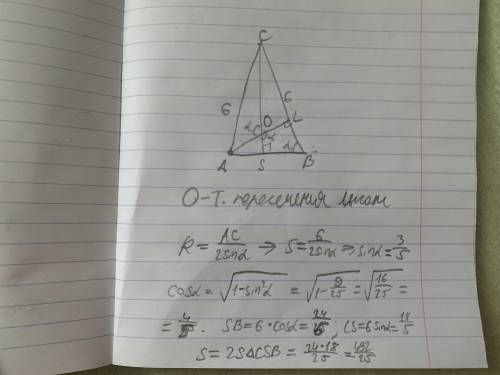 C
6 6
O L
α α
A S B α
O-т. пересечения высот
R = AC/2sinα → 5 = 6/2sinα ⇒ sinα = 3/5
cosα = √(1-sin²α) = √(1-9/25) = √(16/25) =
= 4/5. SB = 6·cosα = 24/5; CS = 6sinα = 18/5
S = 2S△CSB = 24·18/25 = 432/25